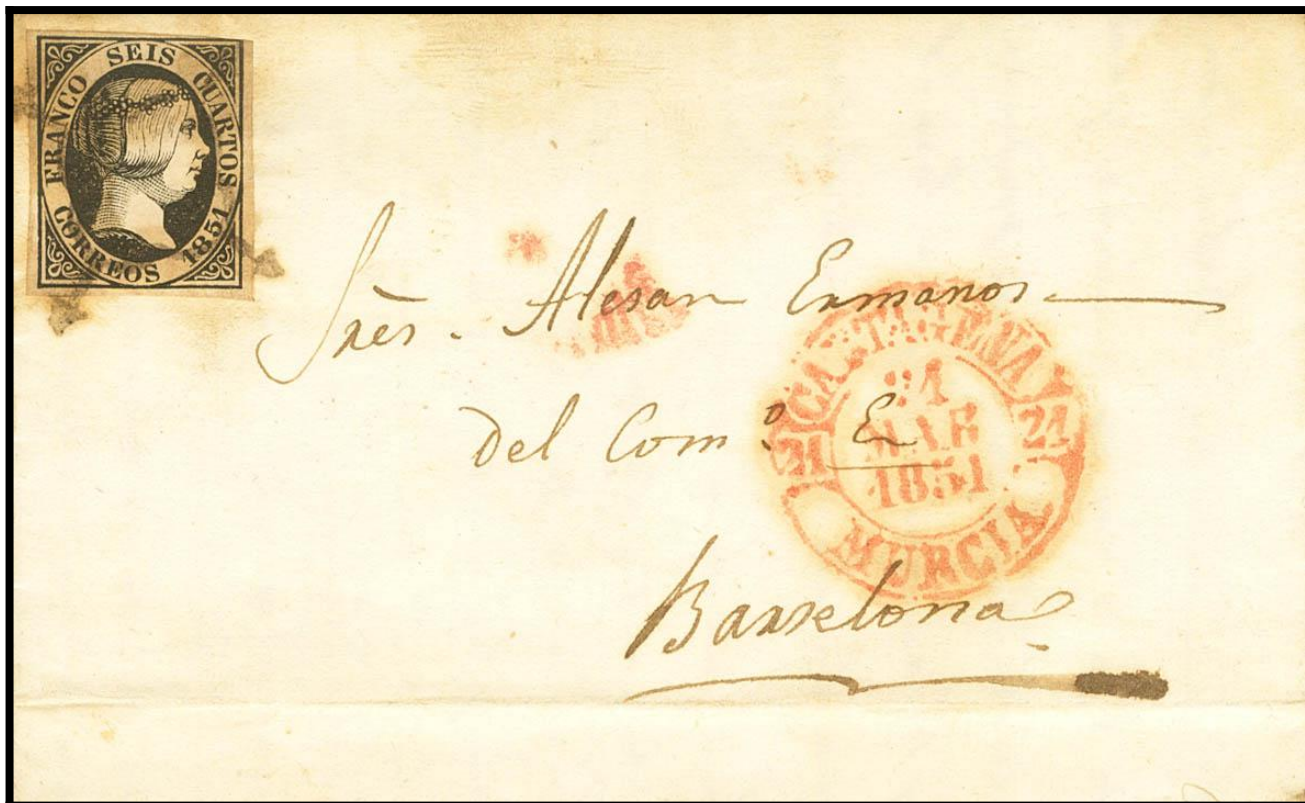 FRANCO SEIS CUARTOS
CORREOS 1851
Sres. Alesan Ermanos
del Com.º En
Barselona
CARTAGENA
21
21 MAR 1851
21
MURCIA